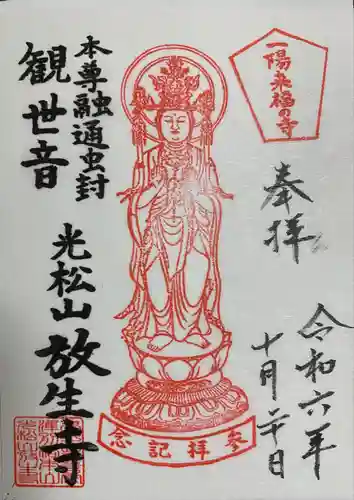 一陽来福の寺
奉拝
令和六年
十月二十日
本尊融通虫封
観世音
光松山
放生寺
参拝記念